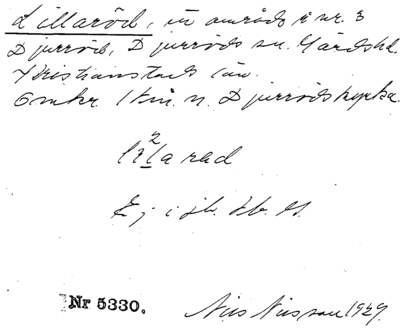 Lillaröd, ‹n område å nr. 3
Djurröd, Djurröds sn. Gärds hd.
Kristianstads län.
Omkr. 1 km. n. Djurröds kyrka.
rad
Ej i jb.
Nr 5330.
Nils Nilsson 1929.